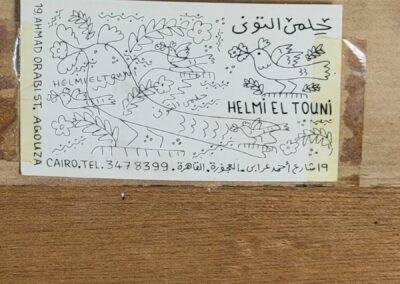 حلمى التونى
HELMI EL TOUNI
HELMI EL TOUNI
حلمى التونى
19, AHMAD ORABI ST., AGOUZA
CAIRO. TEL. 347 8399.
١٩ شارع أحمد عرابى. العجوزة. القاهرة.